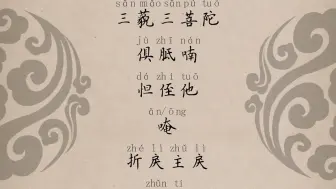 sān miǎo sān pú tuó
三藐三菩陀
jù zhī nán
俱胝喃
dá zhí tuō
怛侄他
ǎn/ōng
唵
zhé lì zhǔ lì
折戾主戾
zhǔn tí